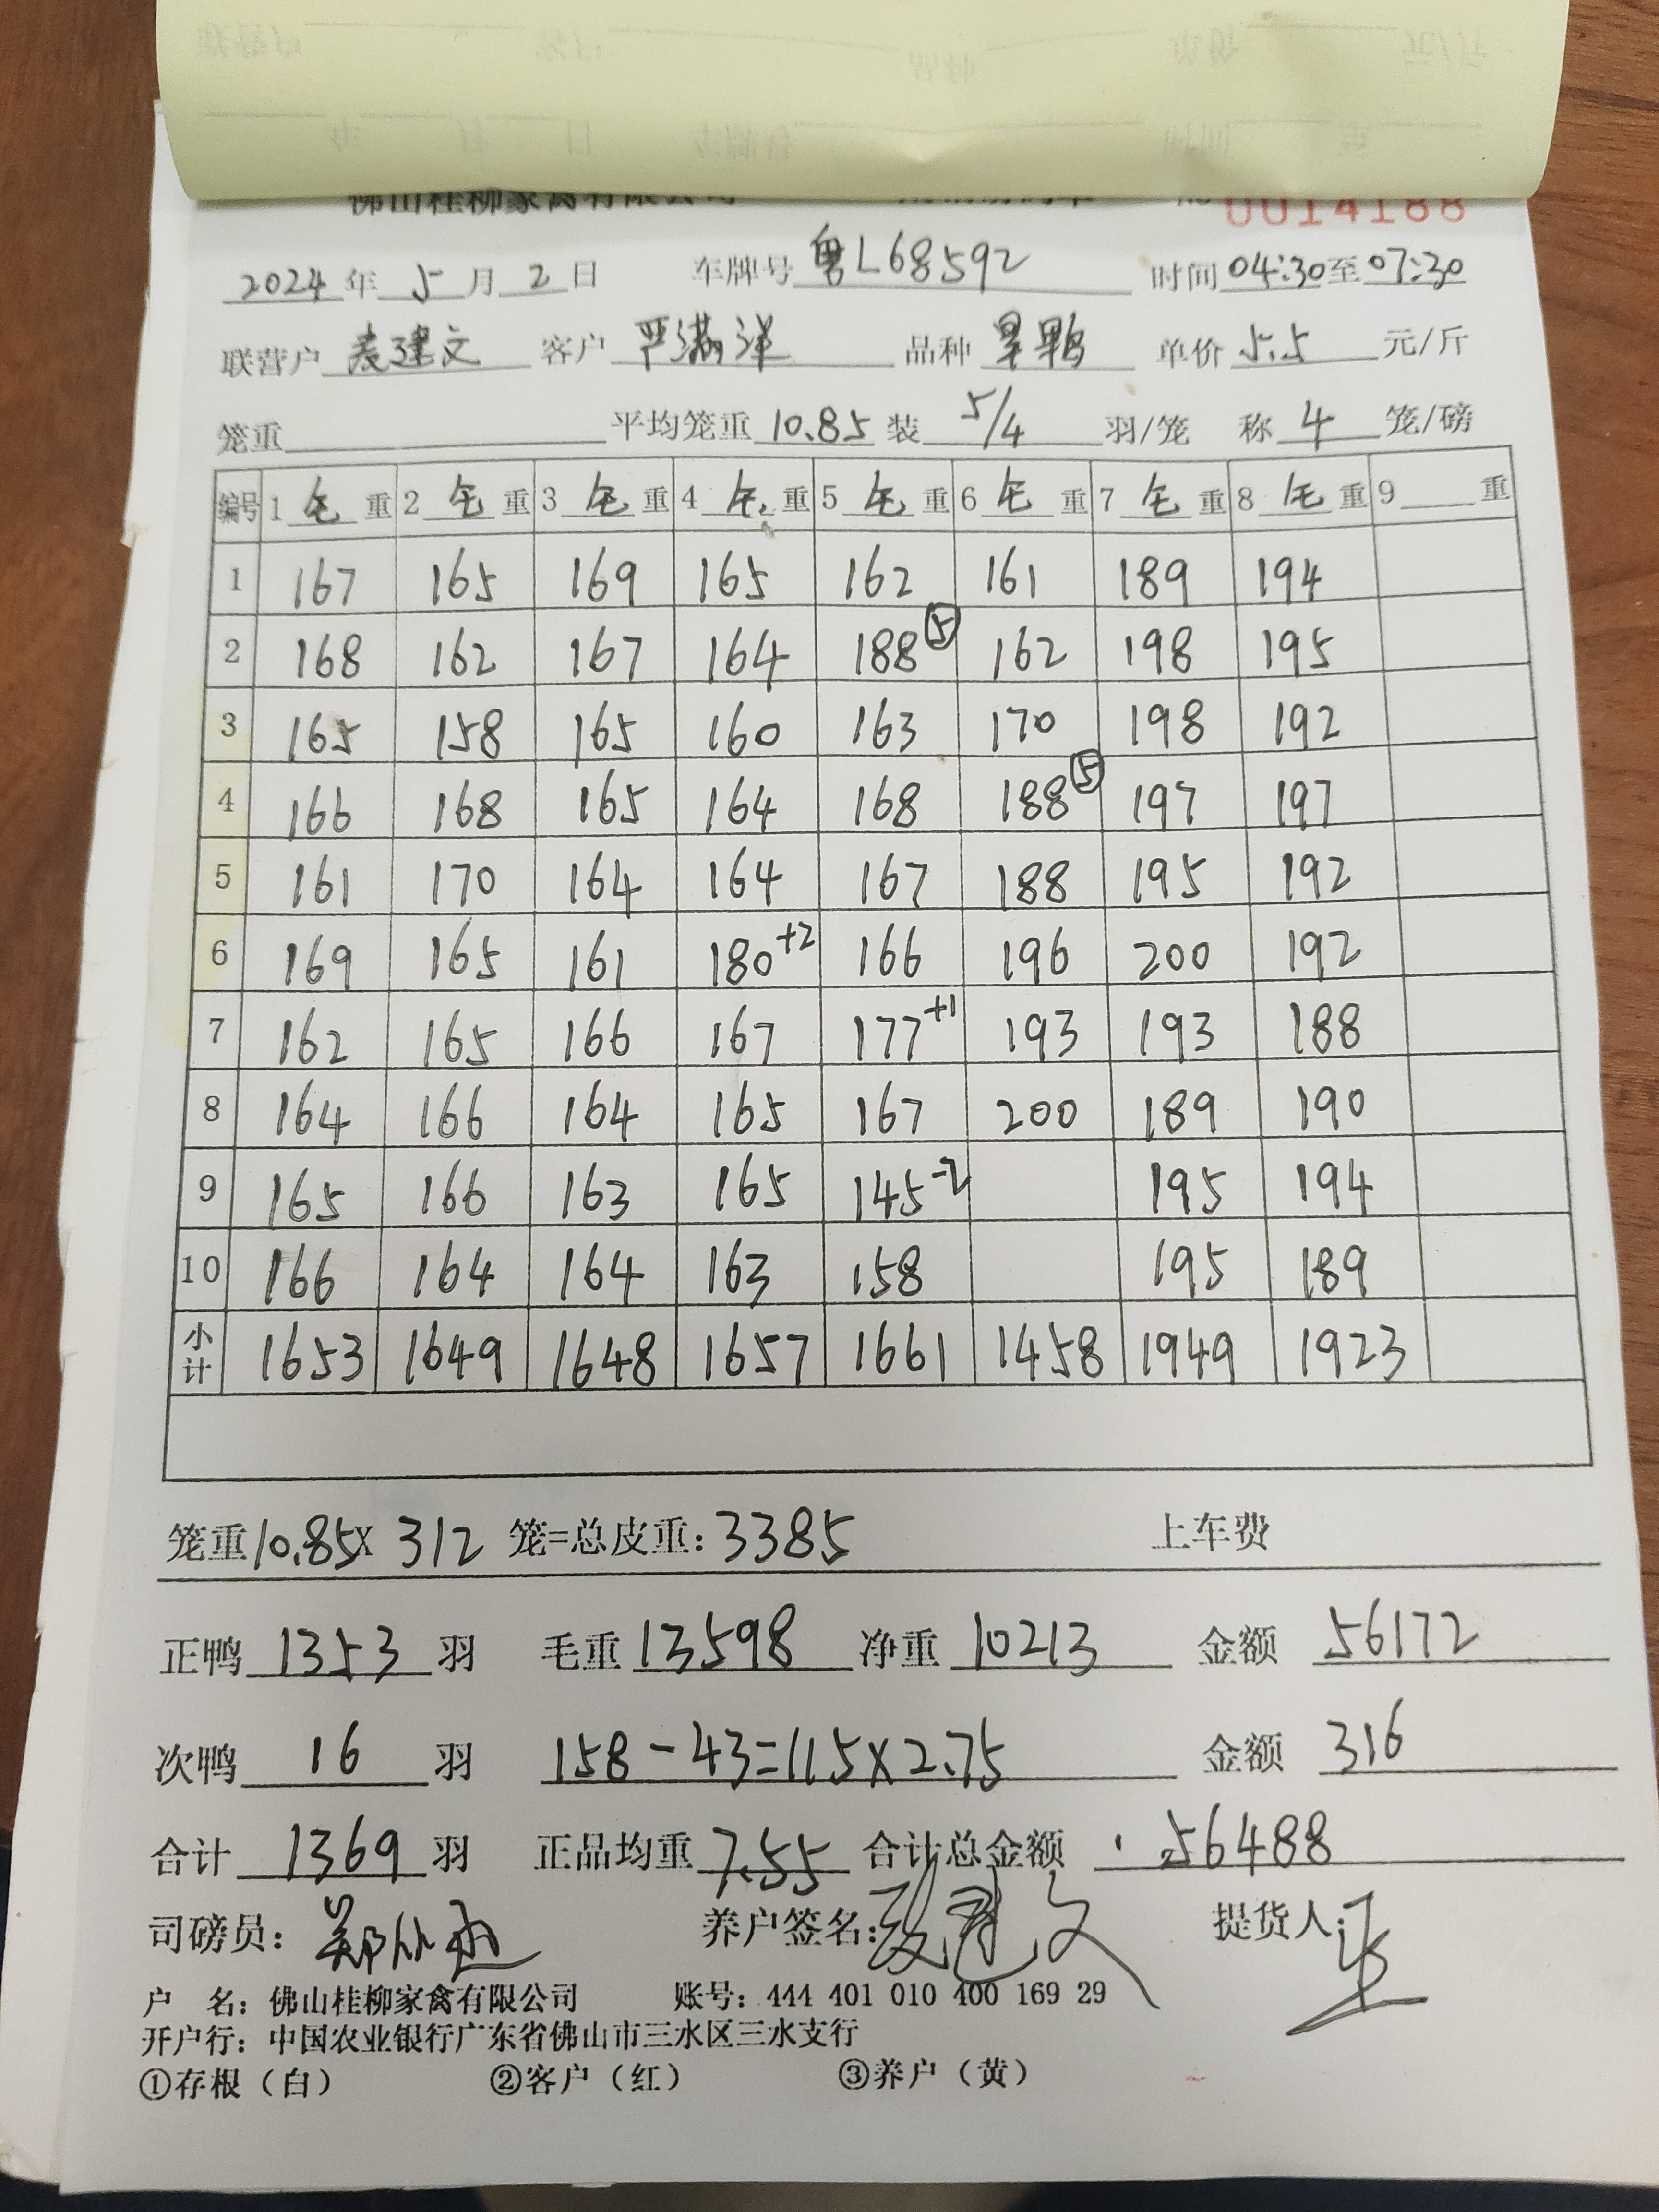 佛山桂柳家禽有限公司 0014188
2024年5月2日 车牌号 粤L68592 时间 04:30至07:30
联营户 麦建文 客户 严满洋 品种 旱鸭 单价 5.5 元/斤
笼重 平均笼重 10.85 装 5/4 羽/笼 称 4 笼/磅
编号 1 毛 重 2 毛 重 3 毛 重 4 毛 重 5 毛 重 6 毛 重 7 毛 重 8 毛 重 9 重
1 167 165 169 165 162 161 189 194
2 168 162 167 164 188⑤ 162 198 195
3 165 158 165 160 163 170 198 192
4 166 168 165 164 168 188⑤ 197 197
5 161 170 164 164 167 188 195 192
6 169 165 161 180+2 166 196 200 192
7 162 165 166 167 177+1 193 193 188
8 164 166 164 165 167 200 189 190
9 165 166 163 165 145-2 195 194
10 166 164 164 163 158 195 189
小计 1653 1649 1648 1657 1661 1458 1949 1923
笼重10.85X 312 笼=总皮重: 3385 上车费
正鸭 1353 羽 毛重 13598 净重 10213 金额 56172
次鸭 16 羽 158-43=115X2.75 金额 316
合计 1369 羽 正品均重 7.55 合计总金额 56488
司磅员: 养户签名: 提货人:
户 名: 佛山桂柳家禽有限公司 账号: 444 401 010 400 169 29
开户行: 中国农业银行广东省佛山市三水区三水支行
①存根（白） ②客户（红） ③养户（黄）